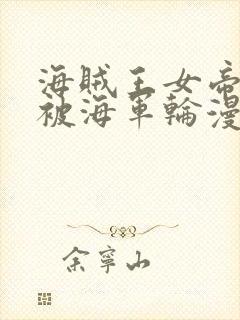 海賊王女帝
被海軍輪漫
余寧山